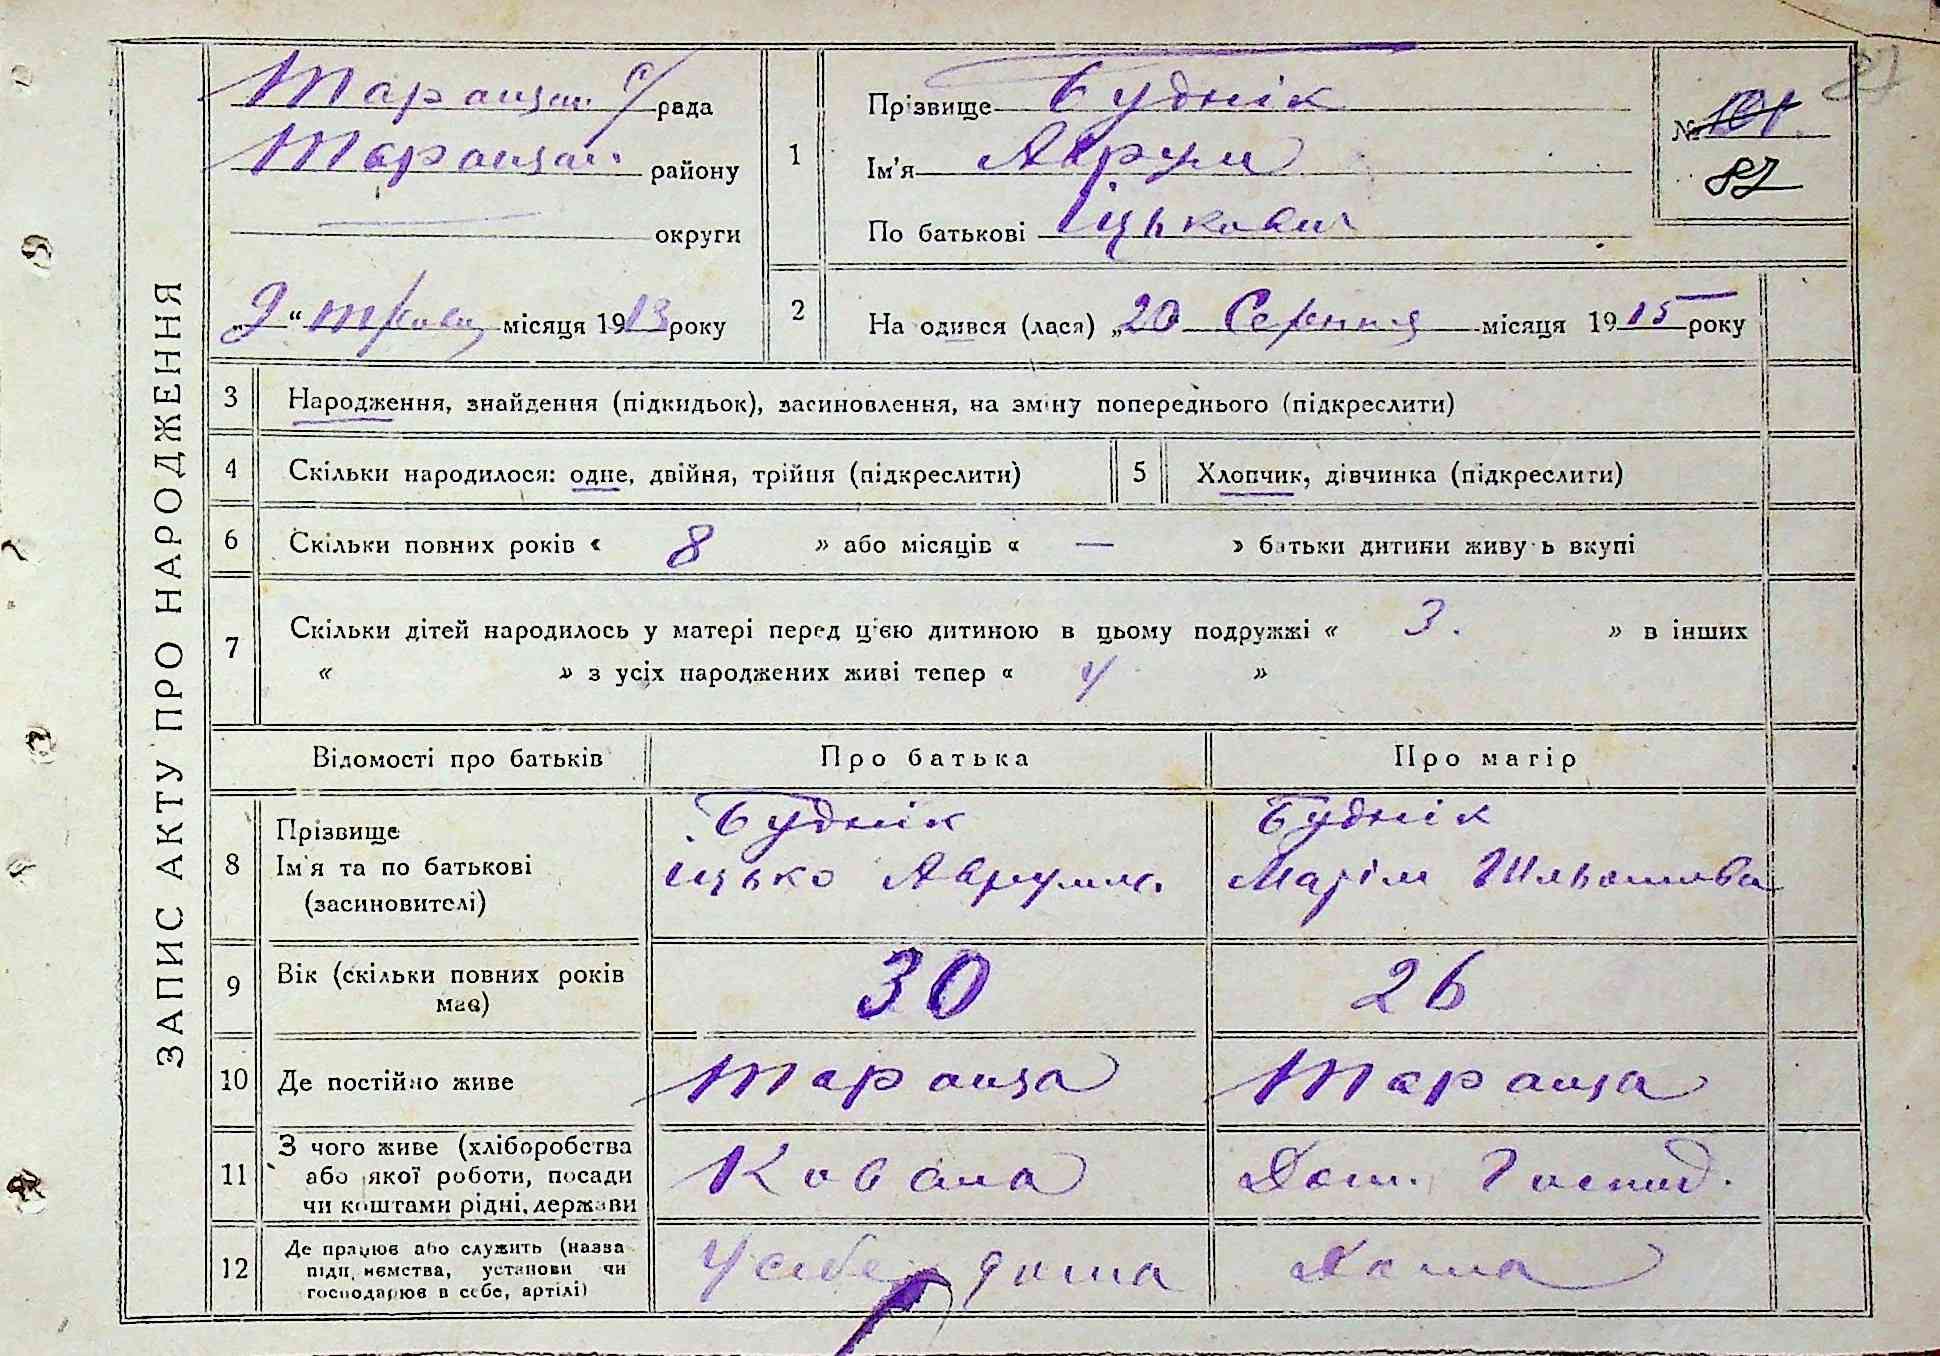 ЗАПИС АКТУ ПРО НАРОДЖЕННЯ
Таращан. с/рада
Таращан. району
округи
„9“ травня місяця 1913 року
1
Прізвище Буднік
Ім'я Аврум
По батькові Іцькович
№ 101.
87
2
На одився (лася) „20 Серпня місяця 1915 року
3
Народження, знайдення (підкидьок), засиновлення, на зміну попереднього (підкреслити)
4
Скільки народилося: одне, двійня, трійня (підкреслити)
5
Хлопчик, дівчинка (підкреслити)
6
Скільки повних років « 8 » або місяців « — » батьки дитини живу ь вкупі
7
Скільки дітей народилось у матері перед цією дитиною в цьому подружжі « 3. » в інших
« » з усіх народжених живі тепер « 4 »
Відомості про батьків
Про батька
Про матір
8
Прізвище
Ім'я та по батькові
(засиновителі)
Буднік
Іцько Аврумов.
Буднік
Маріم
9
Вік (скільки повних років
має)
30
26
10
Де постійно живе
Тараща
Тараща
11
З чого живе (хліборобства
або якої роботи, посади
чи коштами рідні, держави
Коваля
Дом. Господ.
12
Де працює або служить (назва
підп, иємства, установи чи
господарює в себе, артілі)
У себе дома
Дома